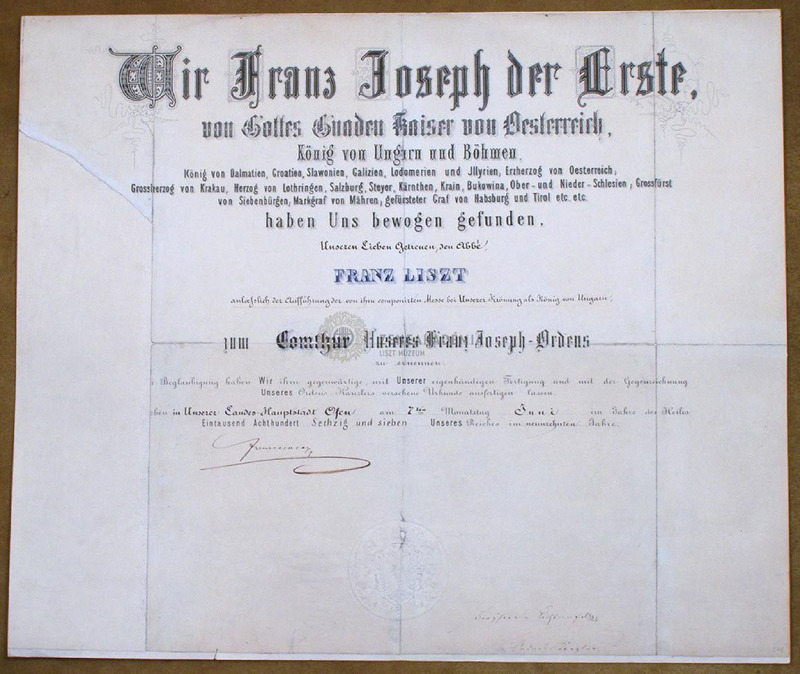 Wir Franz Joseph der Erste,
von Gottes Gnaden Kaiser von Oesterreich,
König von Ungarn und Böhmen,
König von Dalmatien, Croatien, Slawonien, Galizien, Lodomerien und Jllyrien, Erzherzog von Oesterreich;
Grossherzog von Krakau, Herzog von Lothringen, Salzburg, Steyer, Kärnthen, Krain, Bukowina, Ober- und Nieder-Schlesien; Grossfürst
von Siebenbürgen; Markgraf von Mähren; gefürsteter Graf von Habsburg und Tirol etc. etc.
haben Uns bewogen gefunden,
Unseren Lieben Getreuen, den Abbé,
FRANZ LISZT
anlæsslich der Aufführung der von ihm componirten Messe bei Unserer Krönung als König von Ungarn,
zum Comthur Unseres Franz Joseph-Ordens
LISZT MÚZEUM
zu ernennen.
Beglaubigung haben Wir ihm gegenwärtige, mit Unserer eigenhändigen Fertigung und mit der Gegenzeichnung
Unseres Ordens-Kanzlers versehene Urkunde ausfertigen lassen.
ben in Unserer Landes-Hauptstadt Ofen am 7ten Monatstag Juni im Jahre des Heiles
Eintausend Achthundert Sechzig und sieben Unseres Reiches im neunzehnten Jahre.